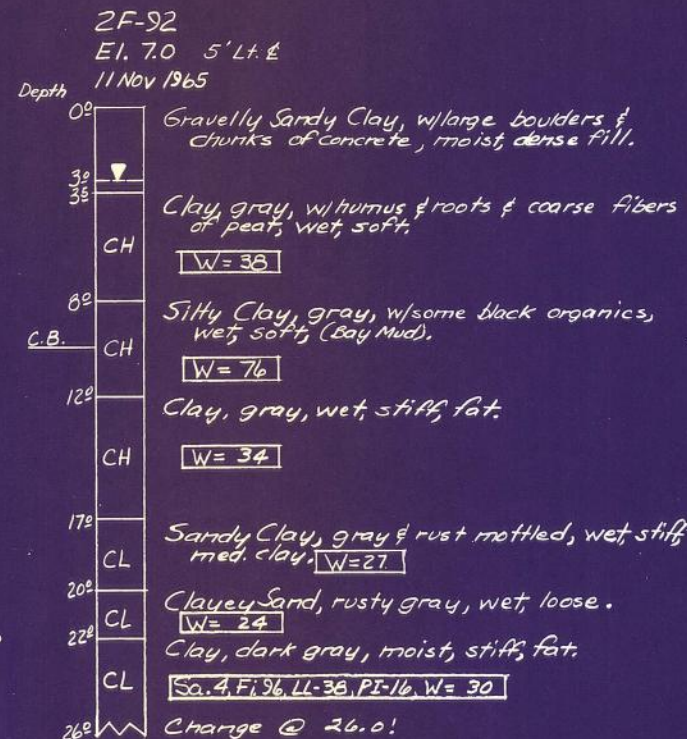 2F-92
El. 7.0 5' Lt. ℄
11 Nov 1965
Depth
0⁰
Gravelly Sandy Clay, w/large boulders &
chunks of concrete, moist, dense fill.
3⁰
3⁵
Clay, gray, w/humus & roots & coarse fibers
of peat, wet, soft.
CH
W = 38
8⁰
Silty Clay, gray, w/some black organics,
wet, soft, (Bay Mud).
C.B.
CH
W = 76
12⁰
Clay, gray, wet, stiff, fat.
CH
W = 34
17⁰
Sandy Clay, gray & rust mottled, wet, stiff,
med. clay. W=27
CL
20⁰
Clayey Sand, rusty gray, wet, loose.
CL
W = 24
22⁰
Clay, dark gray, moist, stiff, fat.
CL
Sa.4, Fi.96, LL-38, PI-16, W = 30
26⁰
Change @ 26.0!